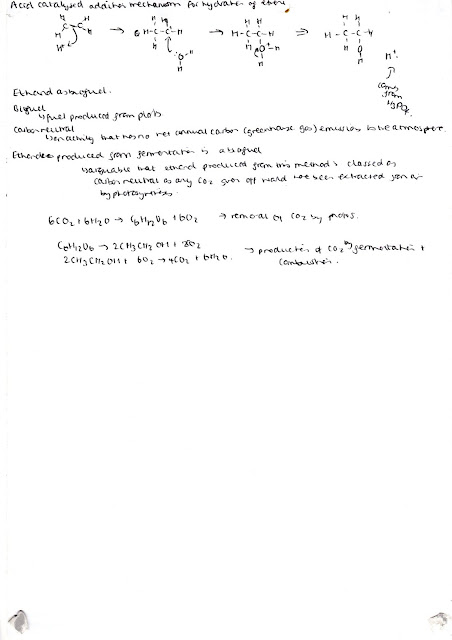 Acid catalysed addition mechanism for hydration of ethene
Ethanol as biofuel.
Biofuel
↳ fuel produced from plants
Carbon neutral
↳ an activity that has no net annual carbon (greenhouse gas) emissions to the atmosphere.
Ethanol produced from fermentation is a biofuel
↳ arguable that ethanol produced from this method is classed as
carbon neutral as any CO2 given off would have been extracted from air
by photosynthesis.
6CO2 + 6H2O → C6H12O6 + 6O2 → removal of CO2 by plants.
C6H12O6 → 2CH3CH2OH + 2CO2 → production of CO2 by fermentation +
2CH3CH2OH + 6O2 → 4CO2 + 6H2O. combustion.
H+
comes
from
H3PO4